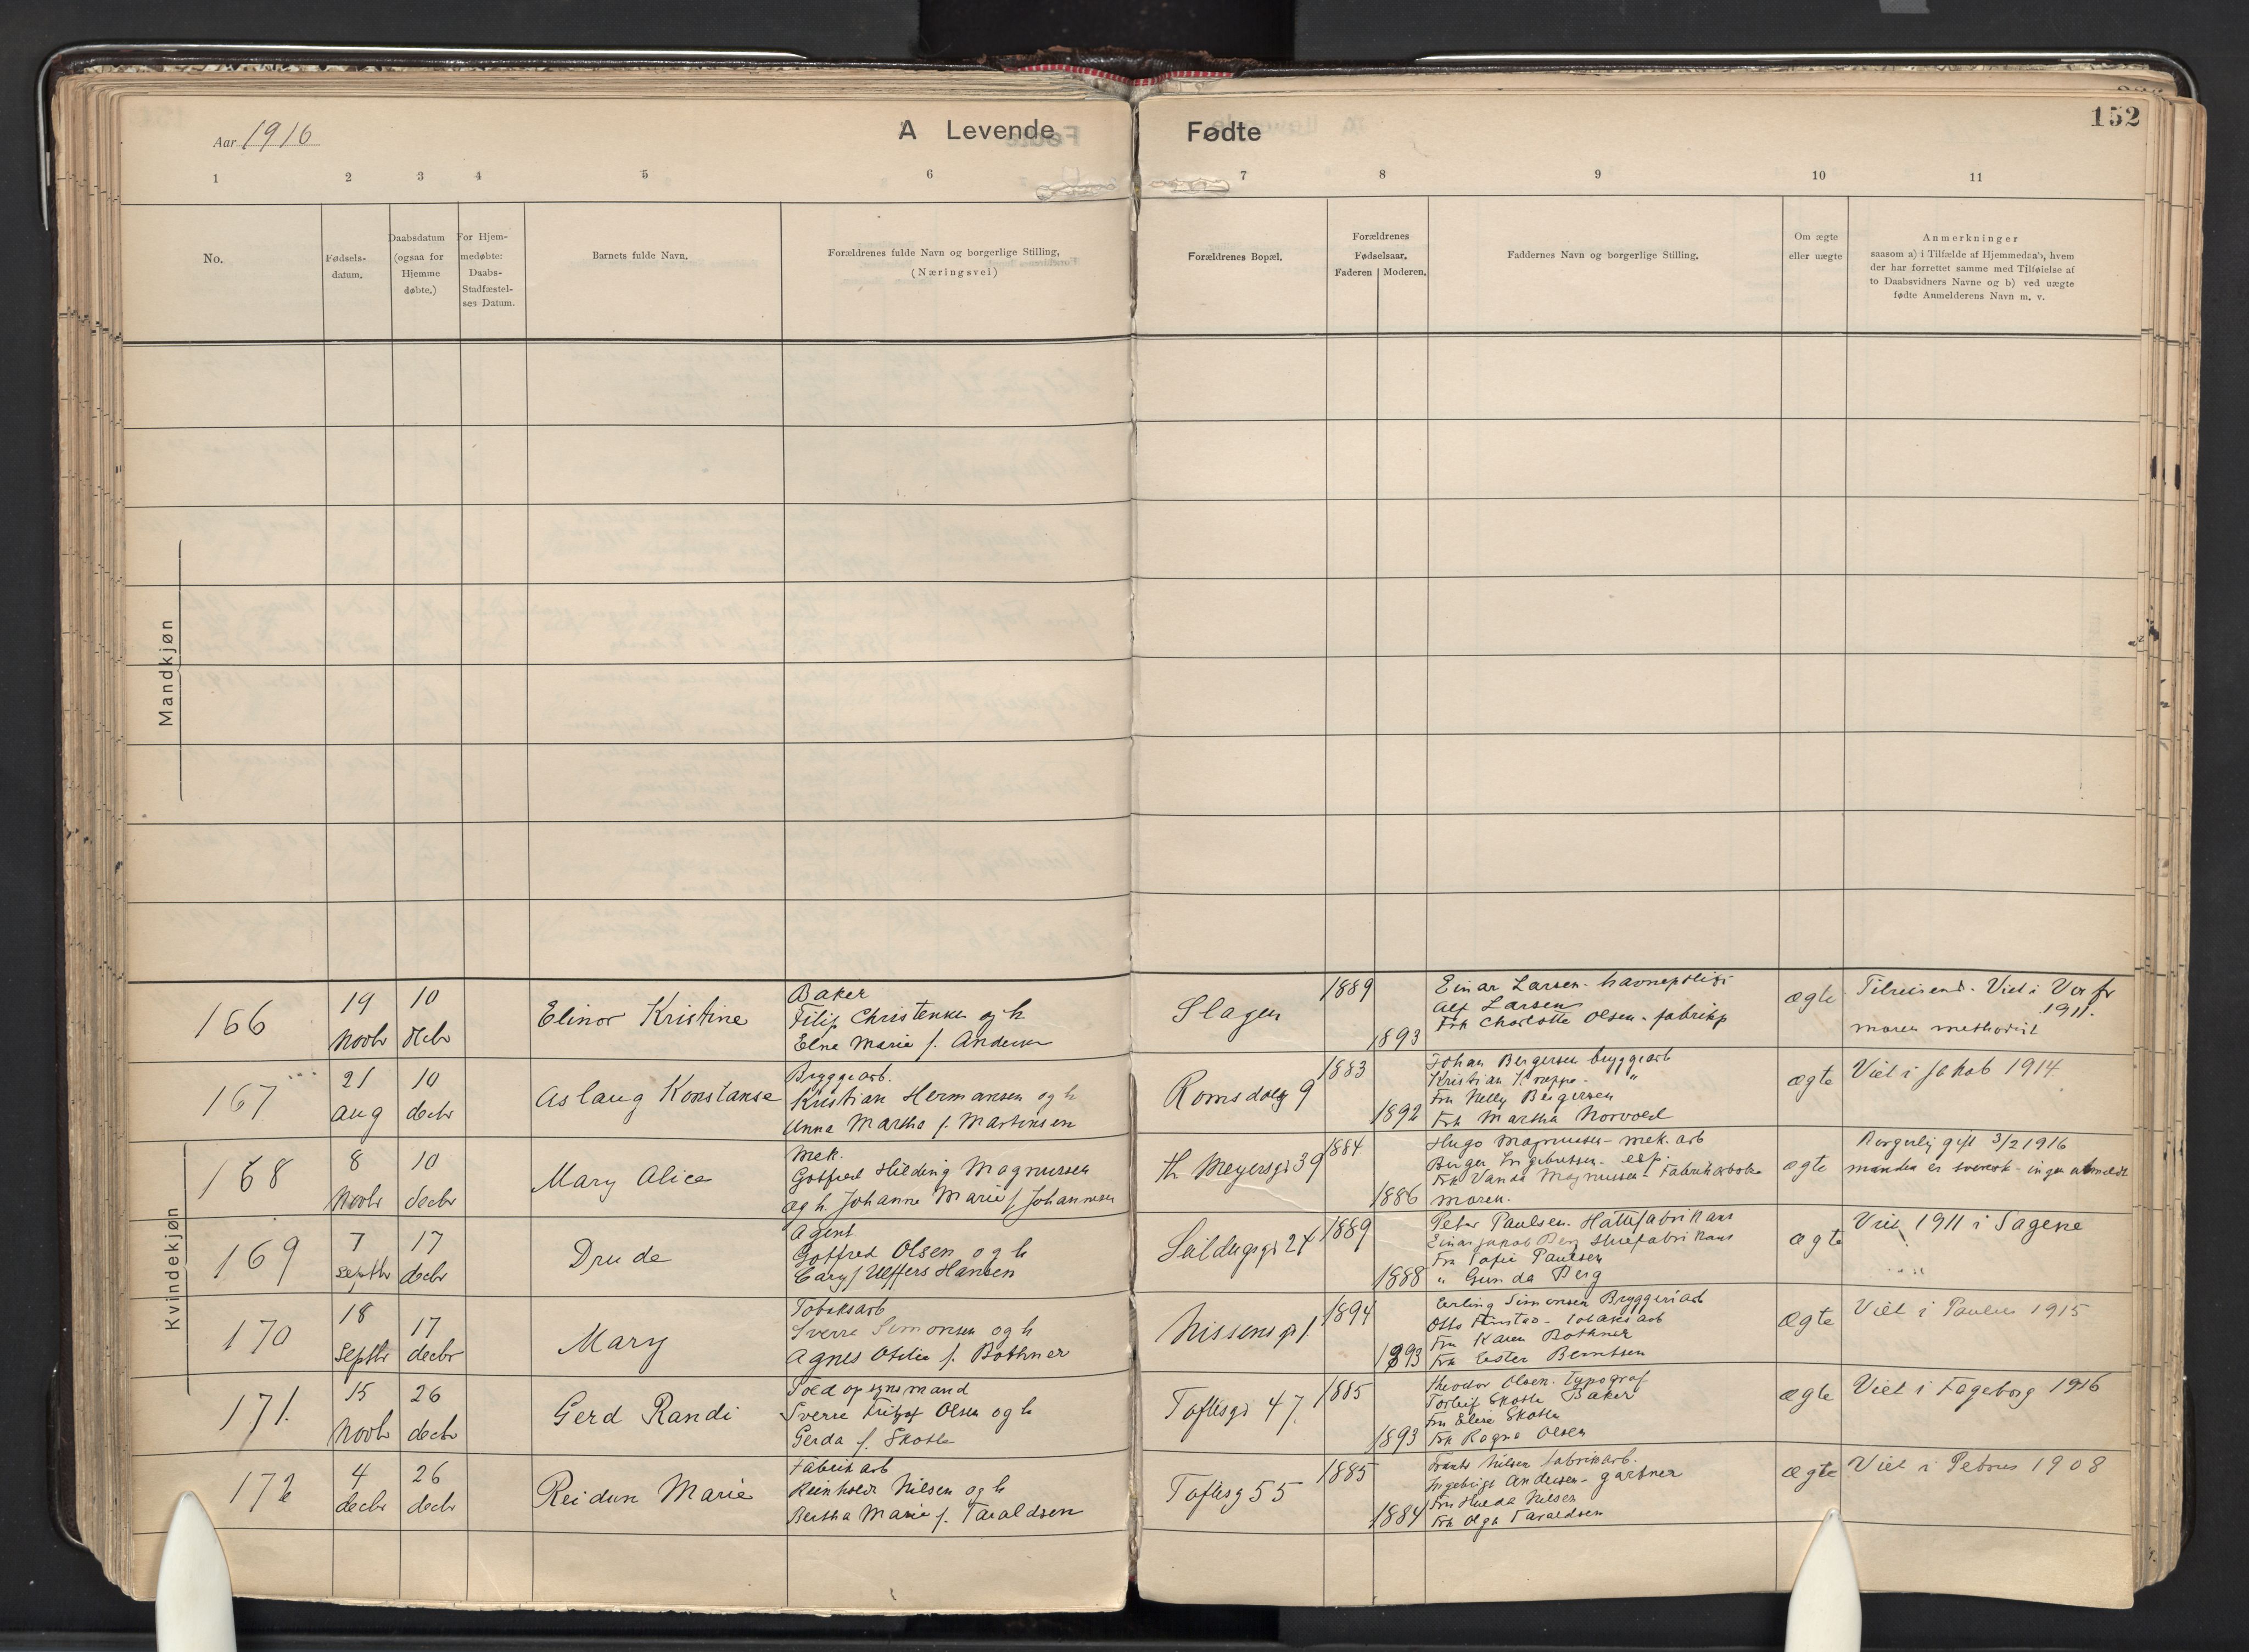 152
Aar 1916
A Levende Fødte
1 2 3 4 5 6 7 8 9 10 11
No.
Fødsels-
datum.
Daabsdatum
(ogsaa for
Hjemme
døbte.)
For Hjem-
medøbte:
Daabs-
Stadfæstel-
ses Datum.
Barnets fulde Navn.
Forældrenes fulde Navn og borgerlige Stilling,
(Næringsvei)
Forældrenes Bopæl.
Forældrenes
Fødselsaar.
Faderen Moderen.
Faddernes Navn og borgerlige Stilling.
Om ægte
eller uægte
Anmerkninger
saasom a) i Tilfælde af Hjemmedaab, hvem
der har forrettet samme med Tilføielse af
to Daabsvidners Navne og b) ved uægte
fødte Anmelderens Navn m. v.
Mandkjøn
Kvindekjøn
166
19
Novbr
10
decbr
Elinor Kristine
Baker
Filip Christensen og h
Elna Marie f. Andersen
Slagen
1889
1893
Einar Larsen - havnepoliti
Alf Larsen
Frk Charlotte Olsen - fabrikp
ægte
Tilreisend. Viet i Vor fr
1911.
moren methodist
167
21
aug
10
decbr
Aslaug Konstanse
Bryggearb.
Kristian Hermansen og h
Anna Martha f. Martinsen
Romsdalsg 9
1883
1892
Johan Bergersen bryggearb
Kristian
Fru Nelly Bergersen
Frk Martha Norvold
ægte
Viet i Jakob 1914
168
8
Novbr
10
decbr
Mary Alice
Mek.
Gotfred Hilding Magnussen
og h. Johanne Marie f Johannesen
Th Meyersgt 39
1884
1886
Hugo Magnussen - mek. arb
Birger Ingebretsen - exp.
Frk Vanda Magnussen - Fabrikarbeiderske
Moren.
ægte
Borgerlig gift 3/2 1916
manden er svensk - ingen utmeldt
169
7
Septbr
17
decbr
Drude
Agent
Gotfred Olsen og h
Cary f Ulffers Hansen
Seildugsgt 24
1889
1888
Peter Paulsen. Hattefabrikant
Einar Jakob Berg Huefabrikant
Fru Sofie Paulsen
" Gunda Berg
ægte
Viet 1911 i Sagene
170
18
Septbr
17
decbr
Mary
Tobaksarb
Sverre Simonsen og h
Agnes Otilie f. Bothner
Nissensgt 1
1894
1893
Erling Simonsen Bryggeriarb
Otto Finstad - Tobaksarb
Fru Karen Bothner
Frk Ester Berntsen
ægte
Viet i Paulus 1915
171.
15
Novbr
26
decbr
Gerd Randi
Toldopsynsmand
Sverre Fritjof Olsen og h
Gerda f. Skotte
Toftesgt 47
1885
1893
Theodor Olsen. Typograf
Torleif Skotte Baker
Fru Elise Skotte
Frk Ragna Olsen
ægte
Viet i Fageborg 1916
172
4
decbr
26
decbr
Reidun Marie
Fabrikarb
Reinholdt Nilsen og h
Bertha Marie f. Taraldsen
Toftesg 55
1885
1884
Frants Nilsen fabrikarb.
Ingebrigt Andersen - gartner
Fru Hulda Nilsen
Frk Olga Taraldsen
ægte
Viet i Petrus 1908